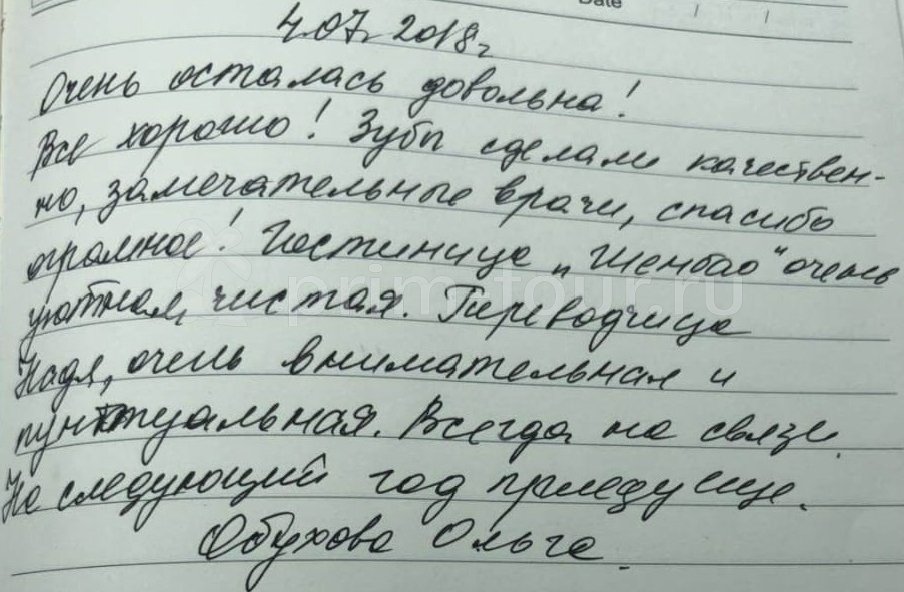 Date / /
4.07. 2018г.
Очень осталась довольна!
Все хорошо! Зубы сделали качествен-
но, замечательные врачи, спасибо
огромное! Гостиница „Шенбао" очень
уютная, чистая. Переводчица
Надя, очень внимательная и
пунктуальная. Всегда на связи.
На следующий год приеду еще.
Обухова Ольга.
prim-tour.ru